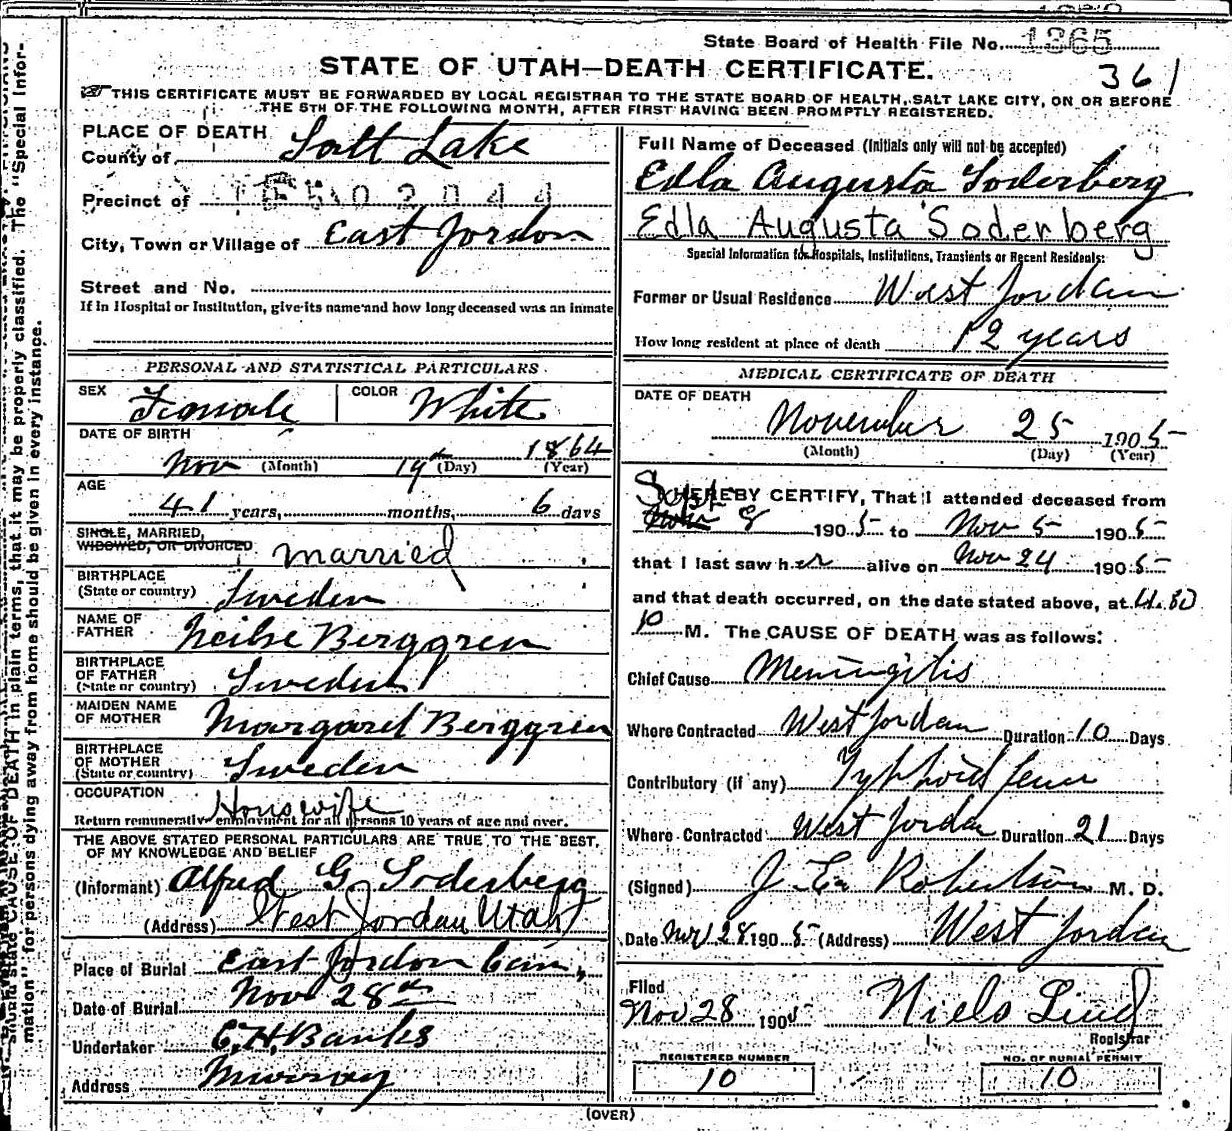 State Board of Health File No. 1365
361
STATE OF UTAH—DEATH CERTIFICATE.
THIS CERTIFICATE MUST BE FORWARDED BY LOCAL REGISTRAR TO THE STATE BOARD OF HEALTH, SALT LAKE CITY, ON OR BEFORE
THE 5TH OF THE FOLLOWING MONTH, AFTER FIRST HAVING BEEN PROMPTLY REGISTERED.
PLACE OF DEATH
County of Salt Lake
Precinct of
City, Town or Village of East Jordon
Street and No.
If in Hospital or Institution, give its name and how long deceased was an inmate
PERSONAL AND STATISTICAL PARTICULARS
SEX Female COLOR White
DATE OF BIRTH
Nov (Month) 19th (Day) 1864 (Year)
AGE
41 years, months, 6 days
SINGLE, MARRIED,
WIDOWED, OR DIVORCED married
BIRTHPLACE
(State or country) Sweden
NAME OF
FATHER Neilse Berggren
BIRTHPLACE
OF FATHER
(State or country) Sweden
MAIDEN NAME
OF MOTHER Margaret Berggren
BIRTHPLACE
OF MOTHER
(State or country) Sweden
OCCUPATION Housewife
Return remunerative employment for all persons 10 years of age and over.
THE ABOVE STATED PERSONAL PARTICULARS ARE TRUE TO THE BEST
OF MY KNOWLEDGE AND BELIEF
(Informant) Alfred G Soderberg
(Address) West Jordan Utah
Place of Burial East Jordon Cem,
Date of Burial Nov 28th
Undertaker C. H. Banks
Address Murray
Full Name of Deceased (Initials only will not be accepted)
Edla Augusta Soderberg
Edla Augusta Soderberg
Special Information for Hospitals, Institutions, Transients or Recent Residents:
Former or Usual Residence West Jordan
How long resident at place of death 12 years
MEDICAL CERTIFICATE OF DEATH
DATE OF DEATH
November 25 1905
(Month) (Day) (Year)
I HEREBY CERTIFY, That I attended deceased from
Sept 8 1905 to Nov 5 1905
that I last saw her alive on Nov 24 1905
and that death occurred, on the date stated above, at 4.30
M. The CAUSE OF DEATH was as follows:
Chief Cause Meningitis
Where Contracted West Jordan Duration 10 Days
Contributory (if any) Typhoid fever
Where Contracted West Jordan Duration 21 Days
(Signed) J. E. Robertson M. D.
Date Nov 28 1905 (Address) West Jordan
Filed
Nov 28 1905 Niels Lind
Registrar
REGISTERED NUMBER
10
NO. OF BURIAL PERMIT
10
(OVER)
should state CAUSE OF DEATH in plain terms, that it may be properly classified. The "Special Infor-
mation" for persons dying away from home should be given in every instance.